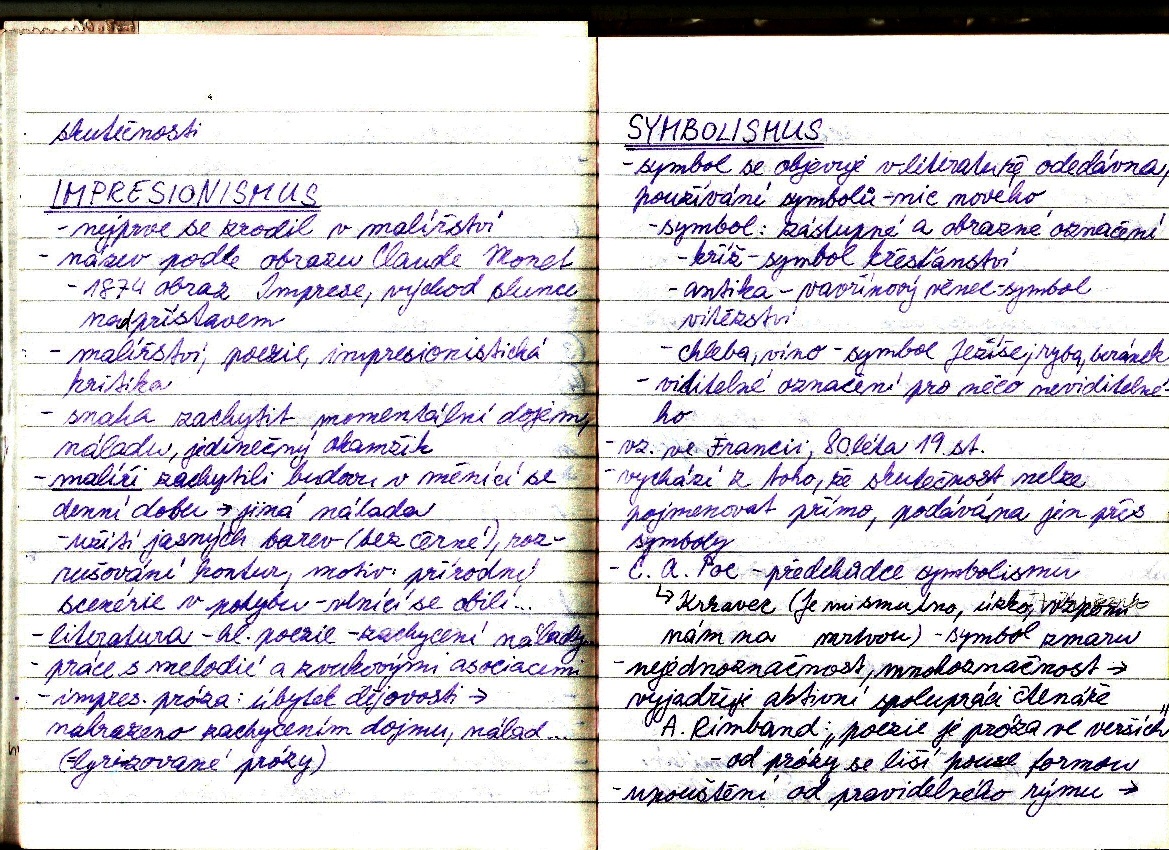 skutečnosti
IMPRESIONISMUS
- nejprve se zrodil v malířství
- název podle obrazu Claude Monet
- 1874 obraz Imprese, východ slunce
nad přístavem
- malířství, poezie, impresionistická
kritika
- snaha zachytit momentální dojem,
náladu, jedinečný okamžik
- malíři zachytili budovu v měnící se
denní dobu → jiná nálada
- užití jasných barev (bez černé), roz-
rušování kontur, motiv: přírodní
scenérie v pohybu - vlnící se obilí...
- literatura - hl. poezie - zachycení nálady
- práce s melodií a zvukovými asociacemi
- impres. próza: úbytek dějovosti →
nahrazeno zachycením dojmu, nálad...
(lyrizované prózy)
SYMBOLISMUS
- symbol se objevuje v literatuře odedávna,
používání symbolů - nic nového
- symbol: zástupné a obrazné označení
- kříž - symbol křesťanství
- antika - vavřínový věnec - symbol
vítězství
- chleba, víno - symbol Ježíše, ryba, beránek
- viditelné označení pro něco neviditelné-
ho
- vz. ve Francii, 80. léta 19. st.
- vychází z toho, že skutečnost nelze
pojmenovat přímo, podávána jen přes
symboly
- E. A. Poe - předchůdce symbolismu
↳ Krkavec (Je mi smutno, úzko, vzpomí
nám na mrtvou) - symbol zmaru
- nejednoznačnost, mnohoznačnost →
vyjadřuje aktivní spolupráci čtenáře
A. Rimbaud: „poezie je próza ve verších"
- od prózy se liší pouze formou
- upouštění od pravidelného rýmu →